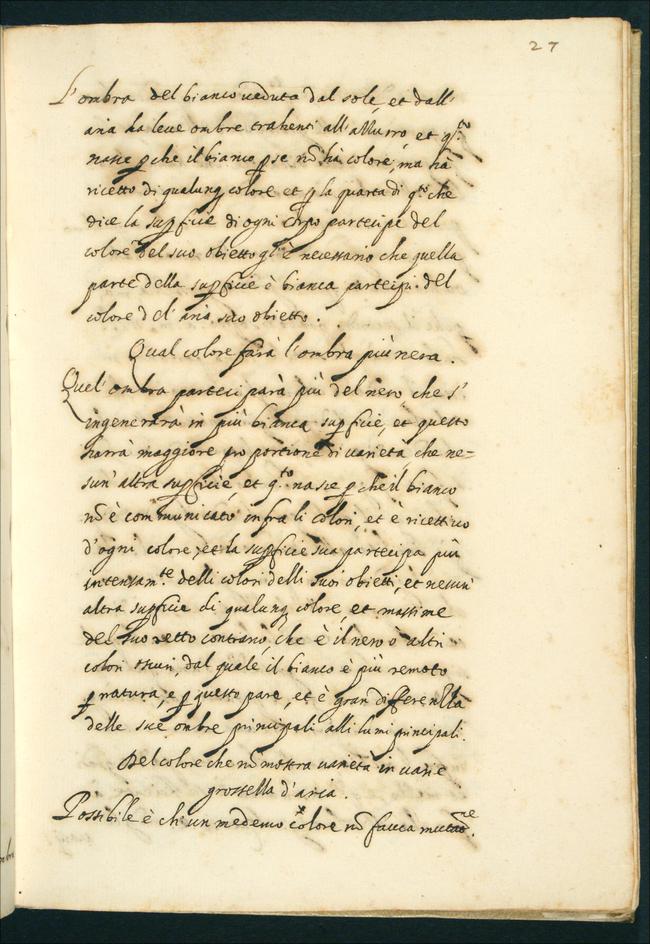 27
L'ombra del bianco veduta dal sole, et dall'
aria ha leve ombre trahenti all'azzurro, et q.to
nasce p che il bianco p se nõ ha colore, ma hà
ricetto di qualunq colore et p la quarta di q.to che
dice la supficie di ogni corpo partecipe del
colore del suo obietto gl'è necessario che quella
parte della supficie è bianca partecipi del
colore del'aria suo obietto.
Qual colore farà l'ombra più nera.
Quel'ombra parteciparà più del nero, che s'
ingenerarà in più bianca supficie, et questo
harrà maggiore proportione di varietà che ne=
sun'altra supficie et q.to nasce p che il bianco
nõ è communicato infra li colori, et è ricettivo
d'ogni colore, et la supficie sua partecipa più
intensam.te delli colori delli suoi obietti, et nesun'
altra supficie di qualunq colore, et massime
del suo retto contrario, che è il nero ò altri
colori oscuri, dal quale il bianco è più remoto
p natura, e p questo pare, et è gran differenzza
delle sue ombre principali alli lumi principali.
Del colore che nõ mostra varietà in varie
grossella d'aria.
Possibile è ch'un medemo colore nõ faccia mutat.ne